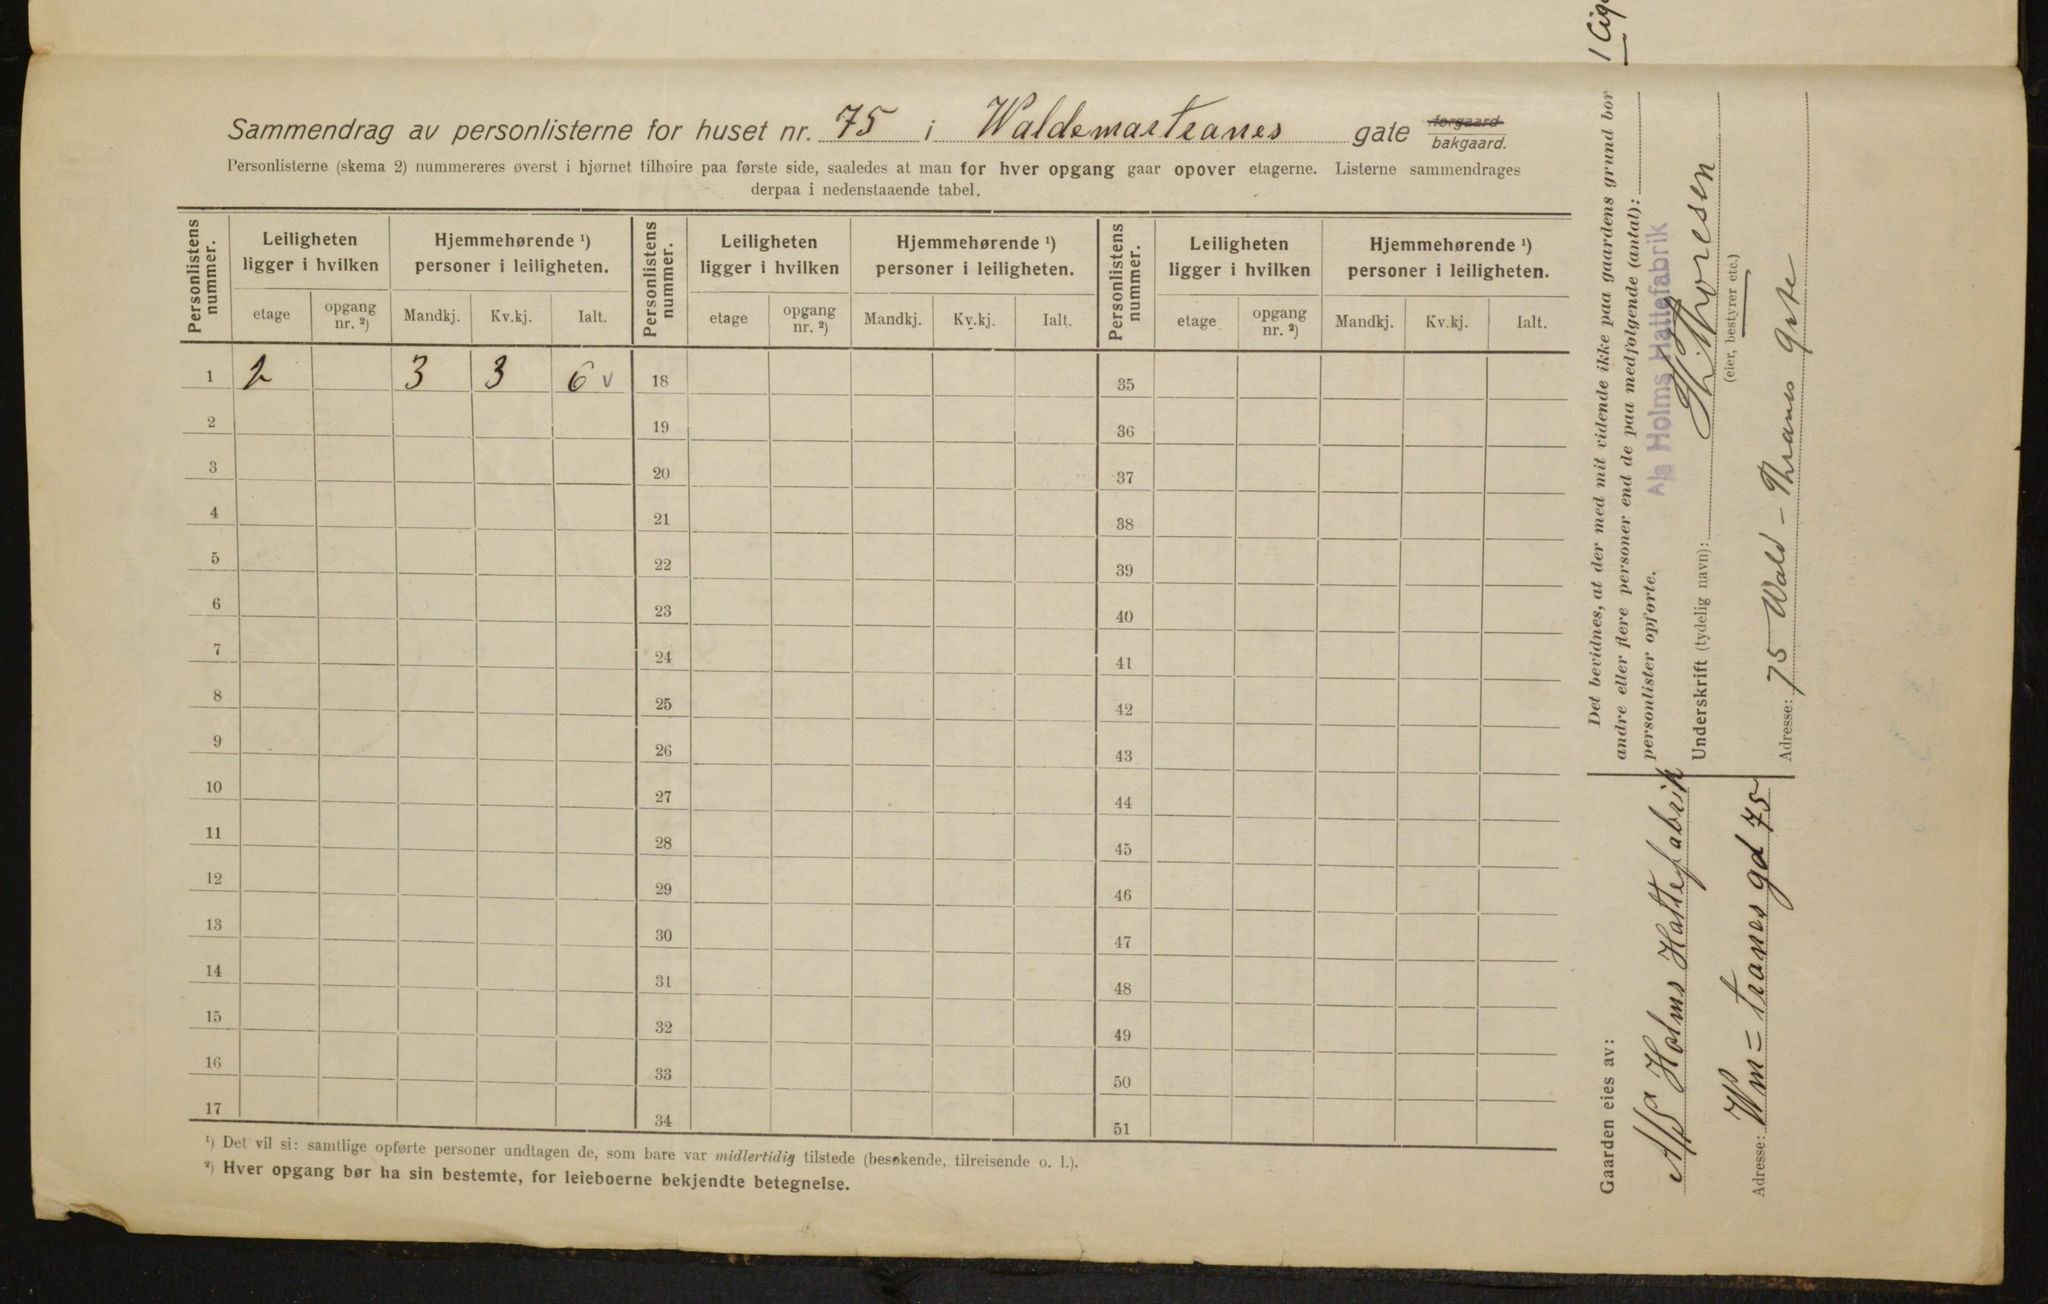 Sammendrag av personlisterne for huset nr. 75 i Waldemar Tranes gate forgaard
bakgaard.
Personlisterne (skema 2) nummereres øverst i hjørnet tilhøire paa første side, saaledes at man for hver opgang gaar opover etagerne. Listerne sammendrages
derpaa i nedenstaaende tabel.
Personlistens nummer. Leiligheten ligger i hvilken Hjemmehørende ¹) personer i leiligheten. Personlistens nummer. Leiligheten ligger i hvilken Hjemmehørende ¹) personer i leiligheten. Personlistens nummer. Leiligheten ligger i hvilken Hjemmehørende ¹) personer i leiligheten.
etage opgang nr. ²) Mandkj. Kv.kj. Ialt. etage opgang nr. ²) Mandkj. Kv.kj. Ialt. etage opgang nr. ²) Mandkj. Kv.kj. Ialt.
1 2 3 3 6 v 18 35
2 19 36
3 20 37
4 21 38
5 22 39
6 23 40
7 24 41
8 25 42
9 26 43
10 27 44
11 28 45
12 29 46
13 30 47
14 31 48
15 32 49
16 33 50
17 34 51
¹) Det vil si: samtlige opførte personer undtagen de, som bare var midlertidig tilstede (besøkende, tilreisende o. l.).
²) Hver opgang bør ha sin bestemte, for leieboerne bekjendte betegnelse.
Gaarden eies av:
A/S Holms Hattefabrik
Adresse: Wm = tranes gd 75
Det bevidnes, at der med mit vidende ikke paa gaardens grund bor
andre eller flere personer end de paa medfølgende (antal):
personlister opførte.
A/S Holms Hattefabrik
Underskrift (tydelig navn): Thoresen
(eier, bestyrer etc.)
Adresse: 75 Wald - Thranes gate
1